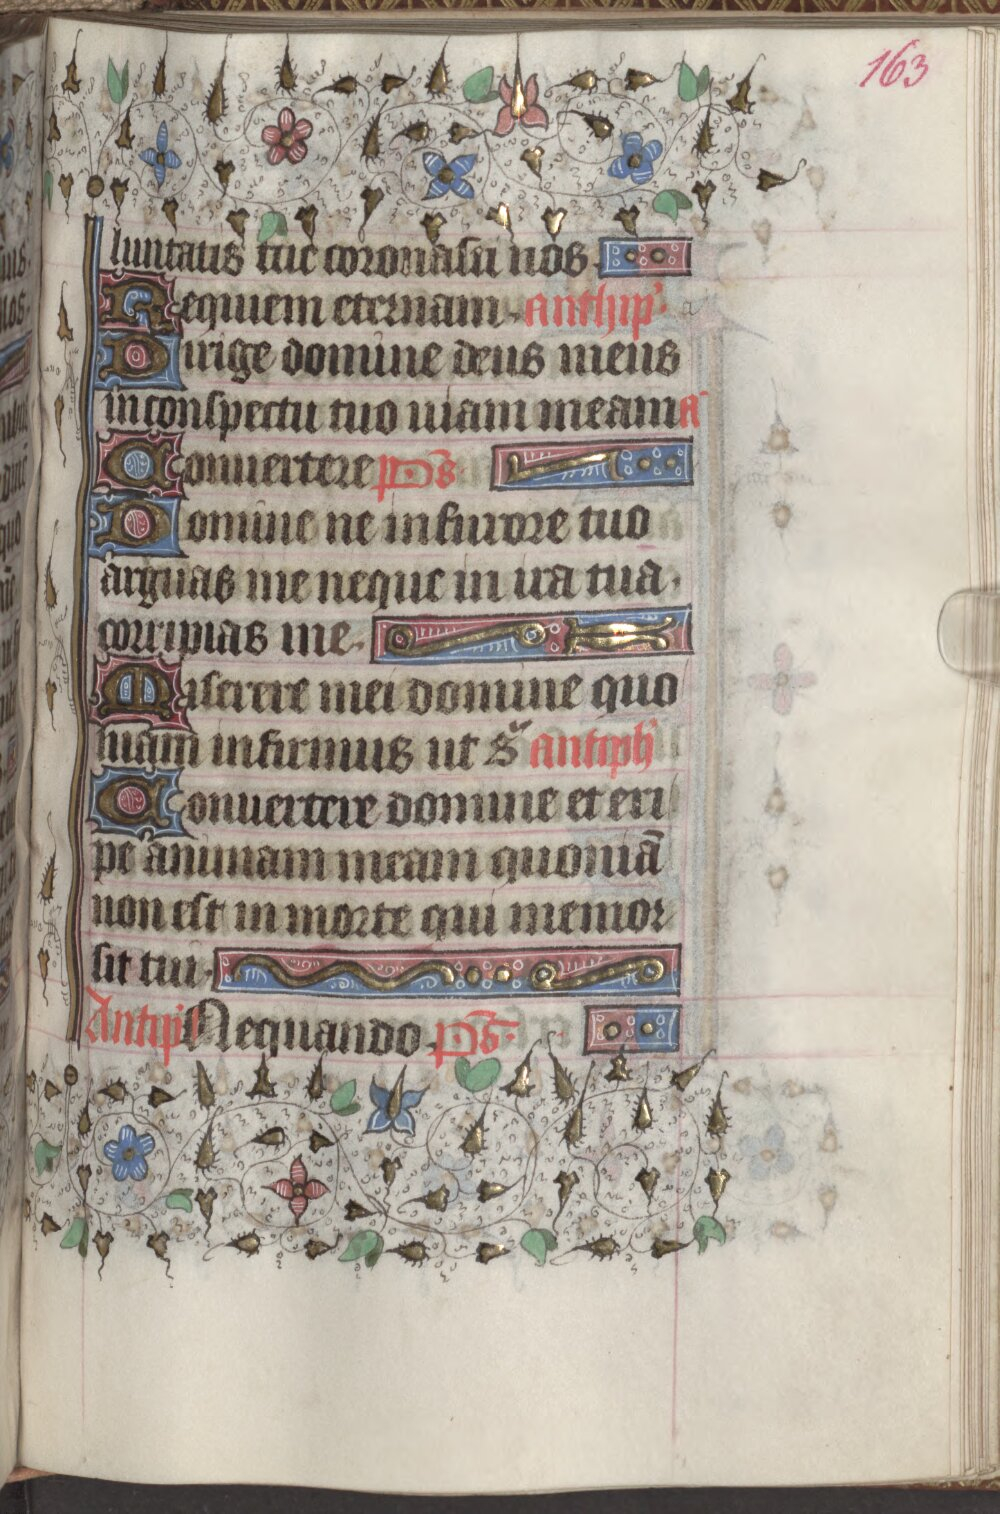 163
luntatis tue coronasti nos.
Requiem eternam. Anthip̄.
Dirige domine deus meus
in conspectu tuo uiam meam a
Conuertere p̄s
Domine ne in furore tuo
arguas me neque in ira tua.
corripias me.
Miserere mei domine quo
niam infirmus ut s̄ antiph̄
Conuertere domine et eri
pe animam meam quoniā
non est in morte qui memor
sit tui.
Antip̄ Nequando. p̄s.